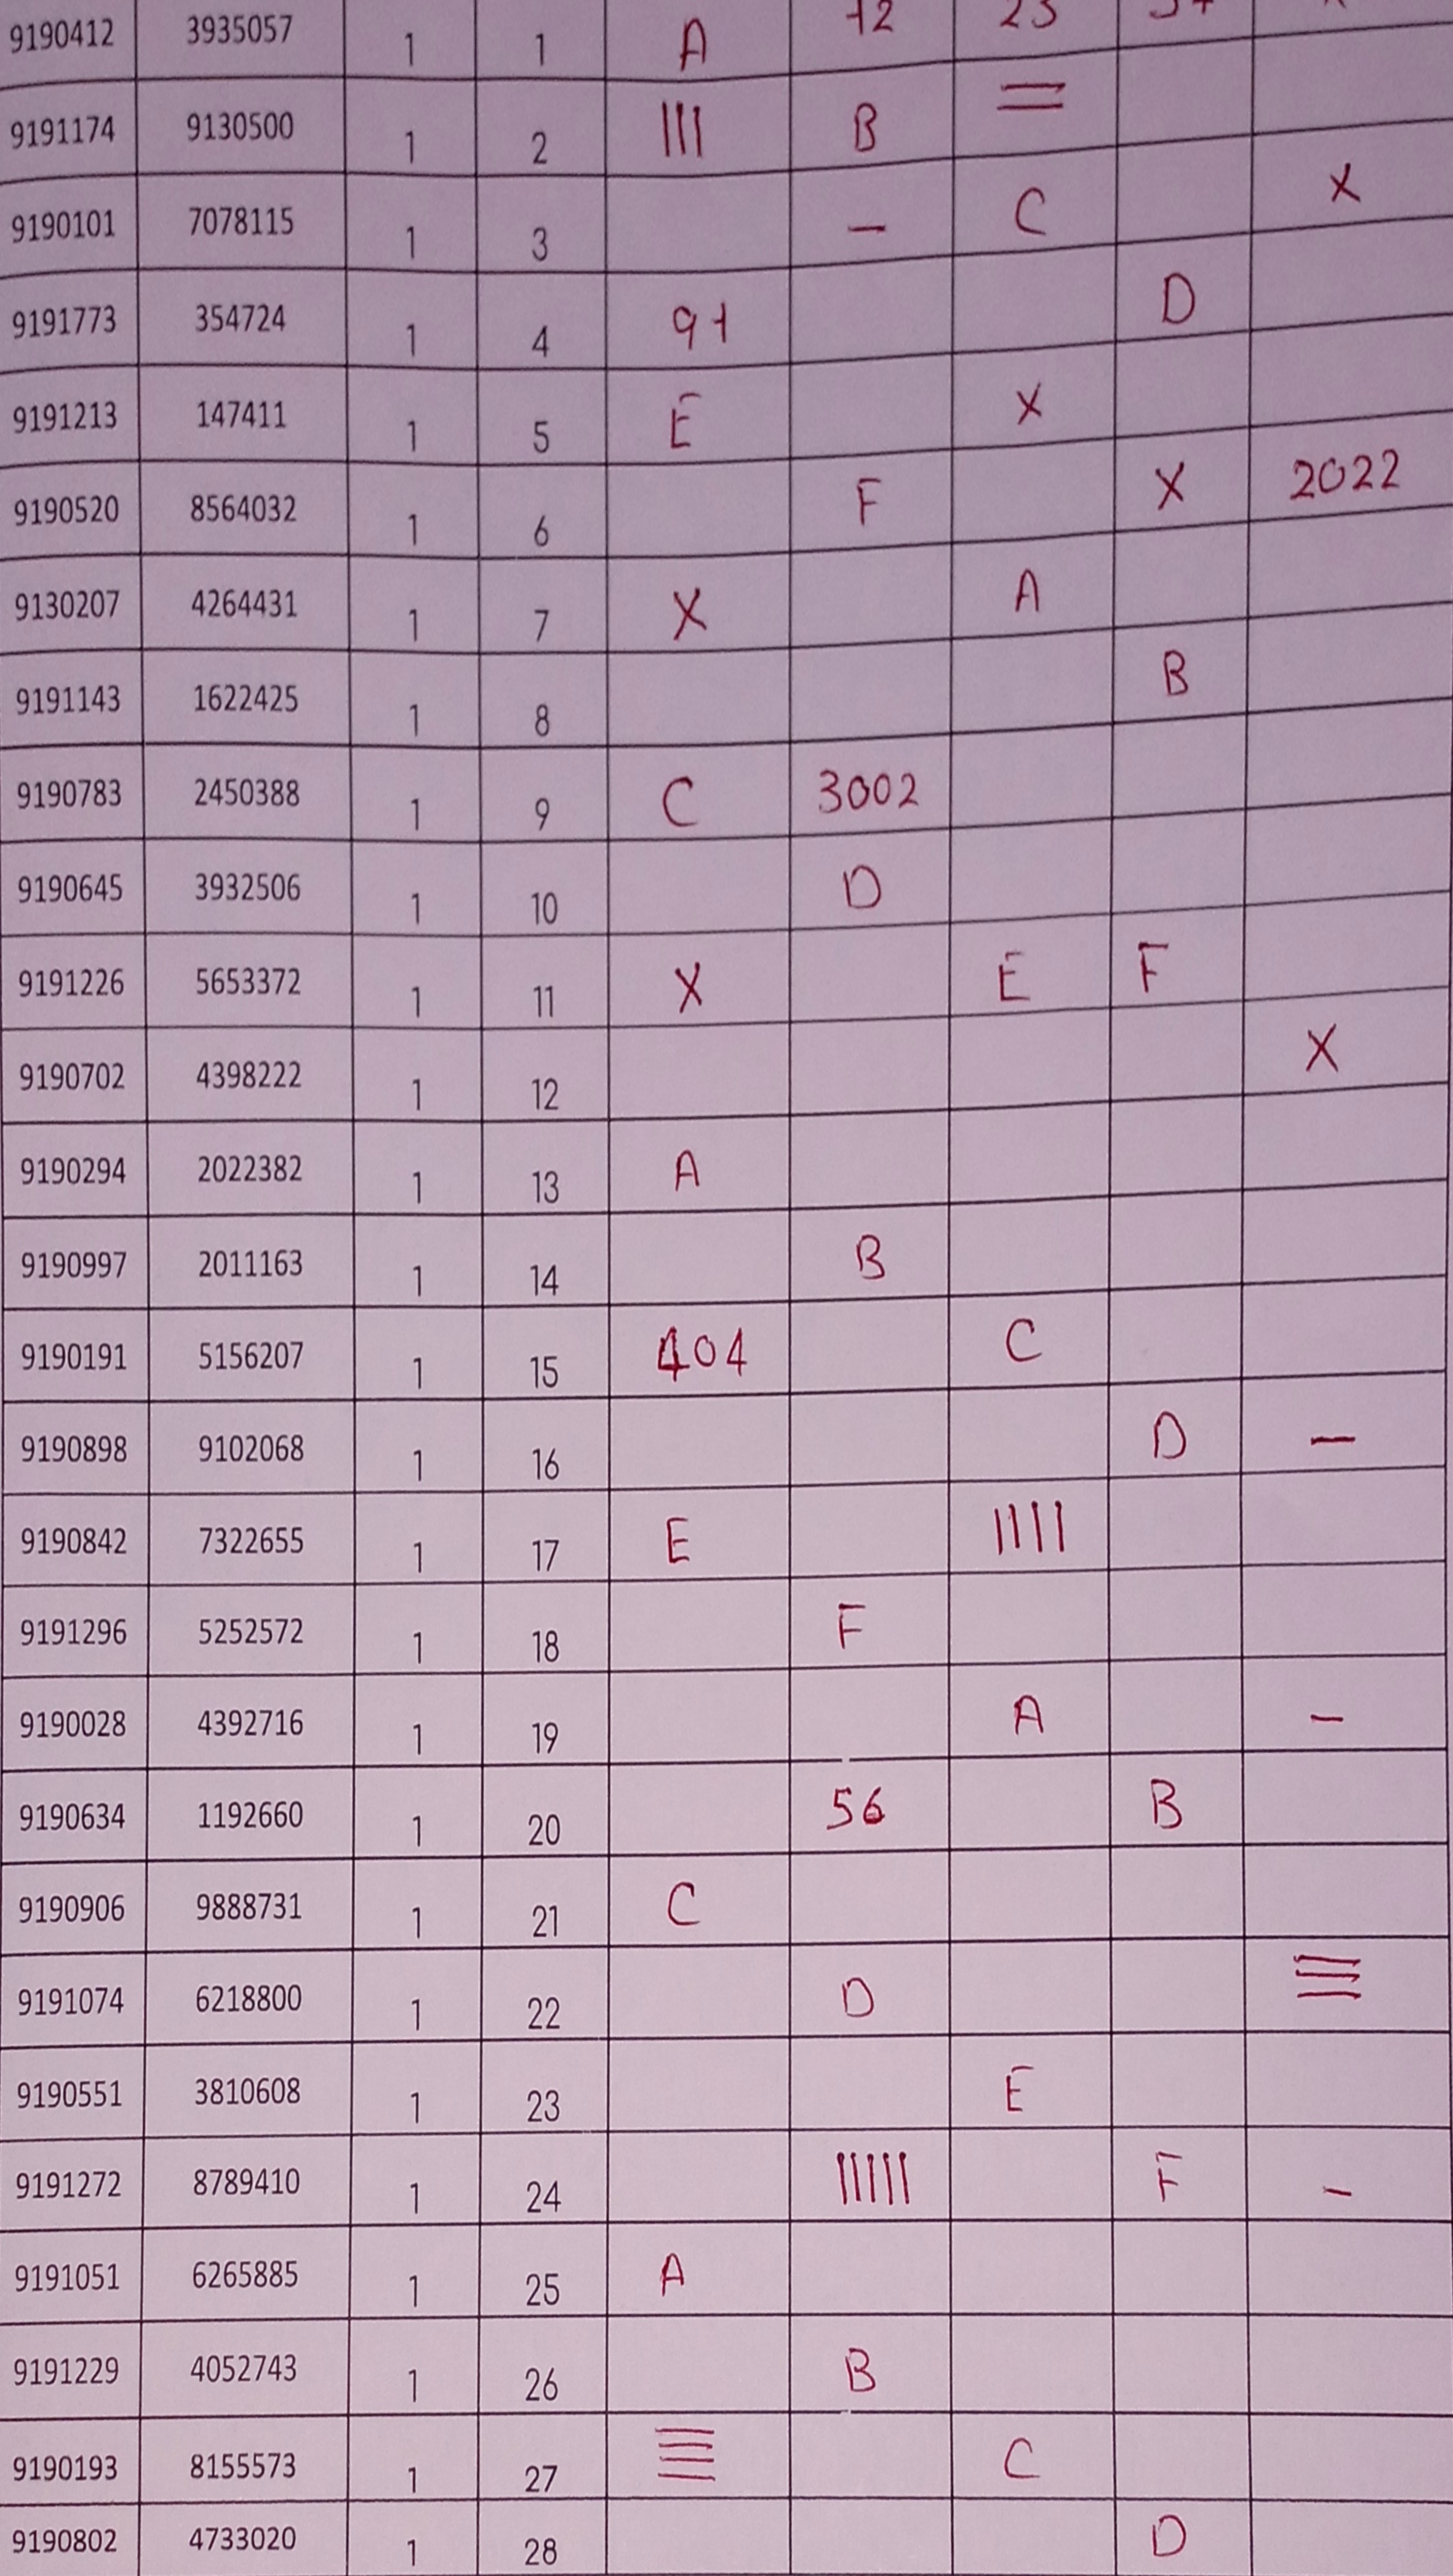 9190412 3935057 1 1 A 12 23
9191174 9130500 1 2 ||| B =
9190101 7078115 1 3 – C X
9191773 354724 1 4 91 D
9191213 147411 1 5 E X
9190520 8564032 1 6 F X 2022
9130207 4264431 1 7 X A
9191143 1622425 1 8 B
9190783 2450388 1 9 C 3002
9190645 3932506 1 10 D
9191226 5653372 1 11 X E F
9190702 4398222 1 12 X
9190294 2022382 1 13 A
9190997 2011163 1 14 B
9190191 5156207 1 15 404 C
9190898 9102068 1 16 D –
9190842 7322655 1 17 E |||| 
9191296 5252572 1 18 F
9190028 4392716 1 19 A –
9190634 1192660 1 20 56 B
9190906 9888731 1 21 C
9191074 6218800 1 22 D ≡
9190551 3810608 1 23 E
9191272 8789410 1 24 ||||| F –
9191051 6265885 1 25 A
9191229 4052743 1 26 B
9190193 8155573 1 27 C
9190802 4733020 1 28 D